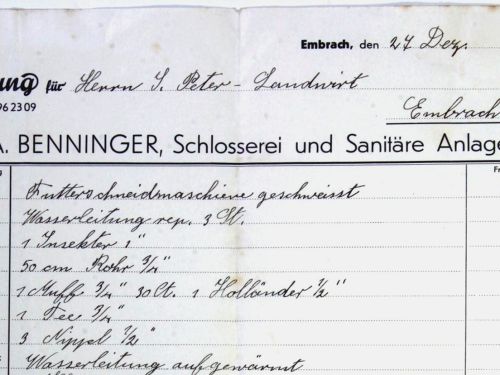 Embrach, den 27 Dez.
ung für Herrn J. Peter - Landwirt
962309
Embrach
A. BENNINGER, Schlosserei und Sanitäre Anlage
Fr
Futterschneidmaschiene geschweisst
Wasserleitung rep. 3 St.
1 Insekter 1"
50 cm Rohr 3/4"
1 Muff 3/4" 30lt. 1 Holländer 1/2"
1 Tee 3/4"
3 Nippel 1/2"
Wasserleitung aufgewärmt